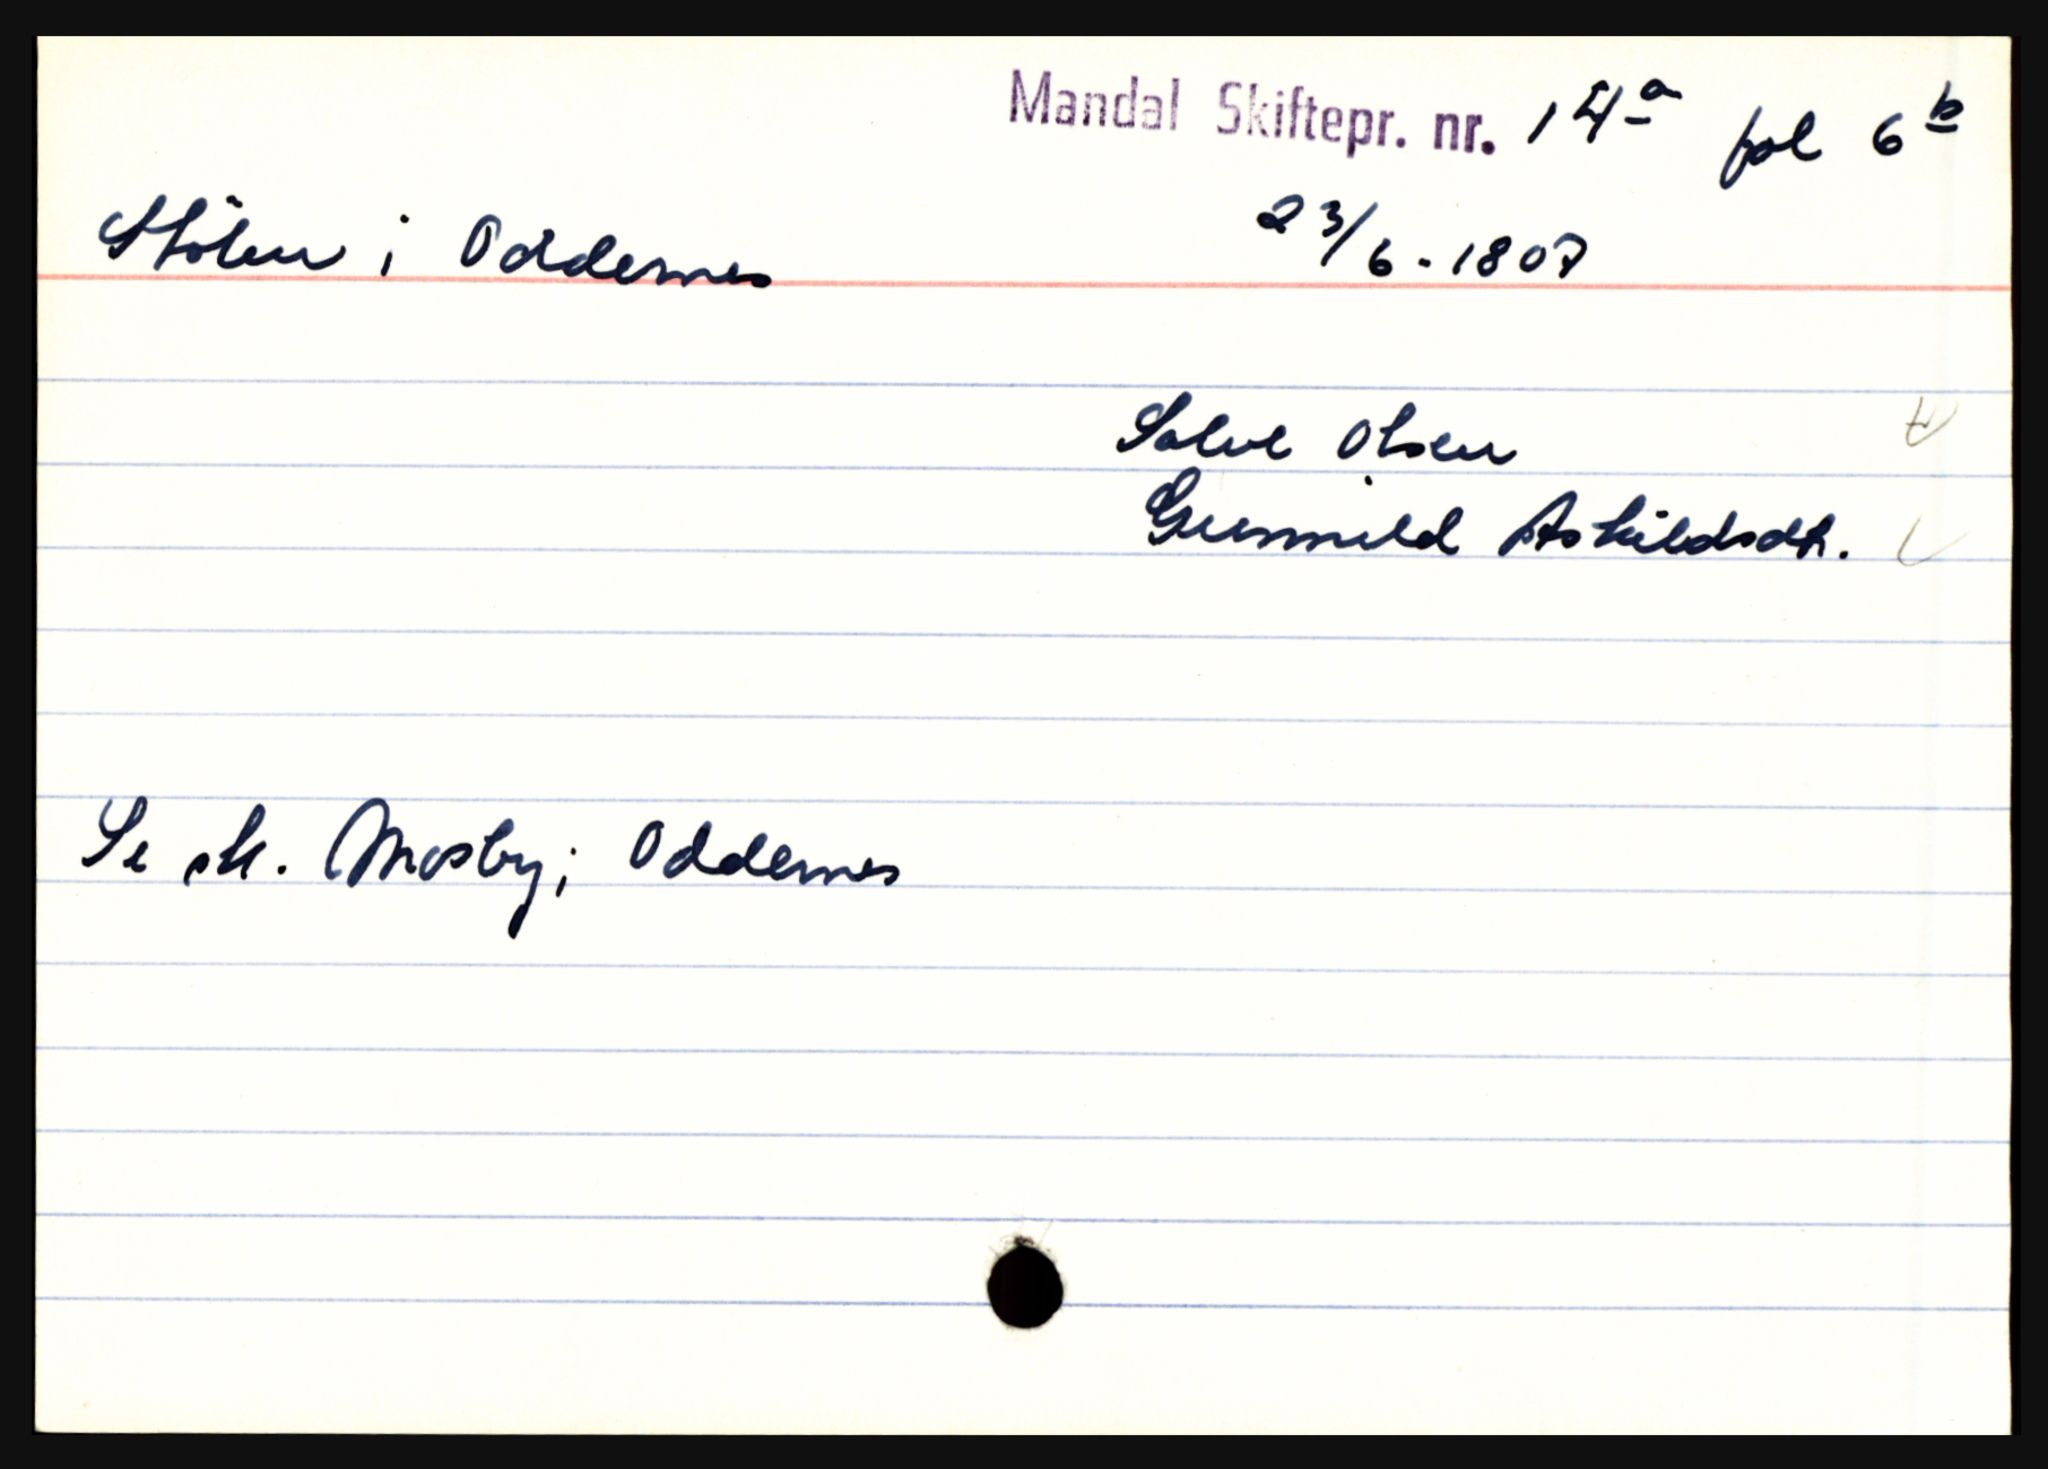 Mandal Skiftepr. nr. 14a fol 6b
Stölen i Oddernes 23/6-1807
Salve Olsen
Gunnild Askildsdtr.
Se sk. Mosby i Oddernes